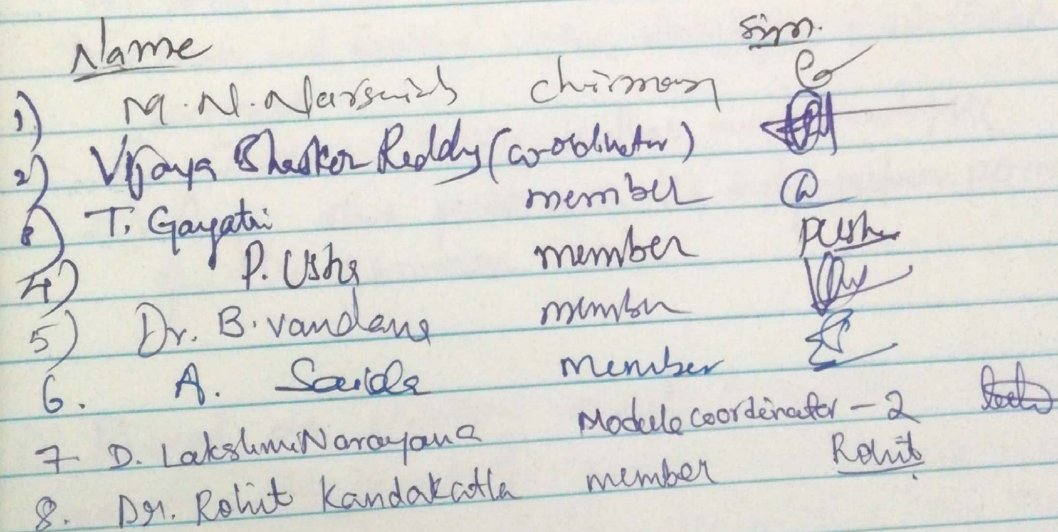 Name Sign.
1) M. N. Narsaiah chirman
2) Vijaya Bhasker Reddy (co-ordinator)
3) T. Gayatri member
4) P. Usha member PUsha
5) Dr. B. Vandana member
6. A. Saida Member
7 D. LakshmiNarayana Module coordinator - 2
8. Dr. Rohit Kandakatla member Rohit